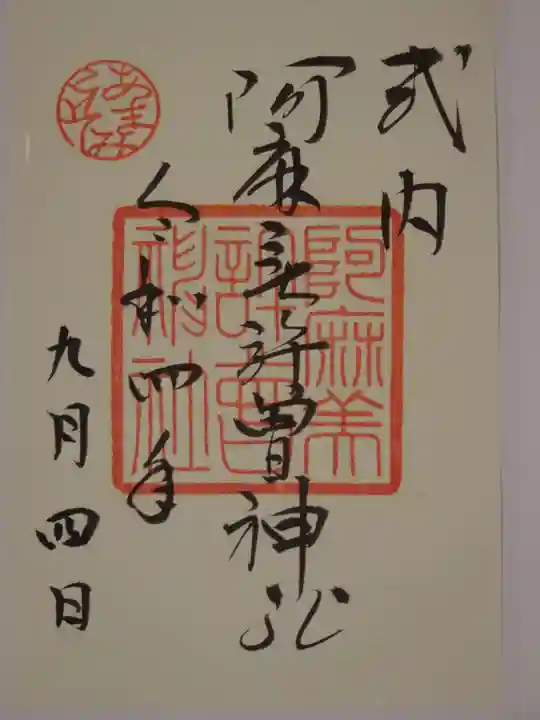 式内
阿麻美許曽神社
令和四年
九月四日
阿麻美
許曽
神社